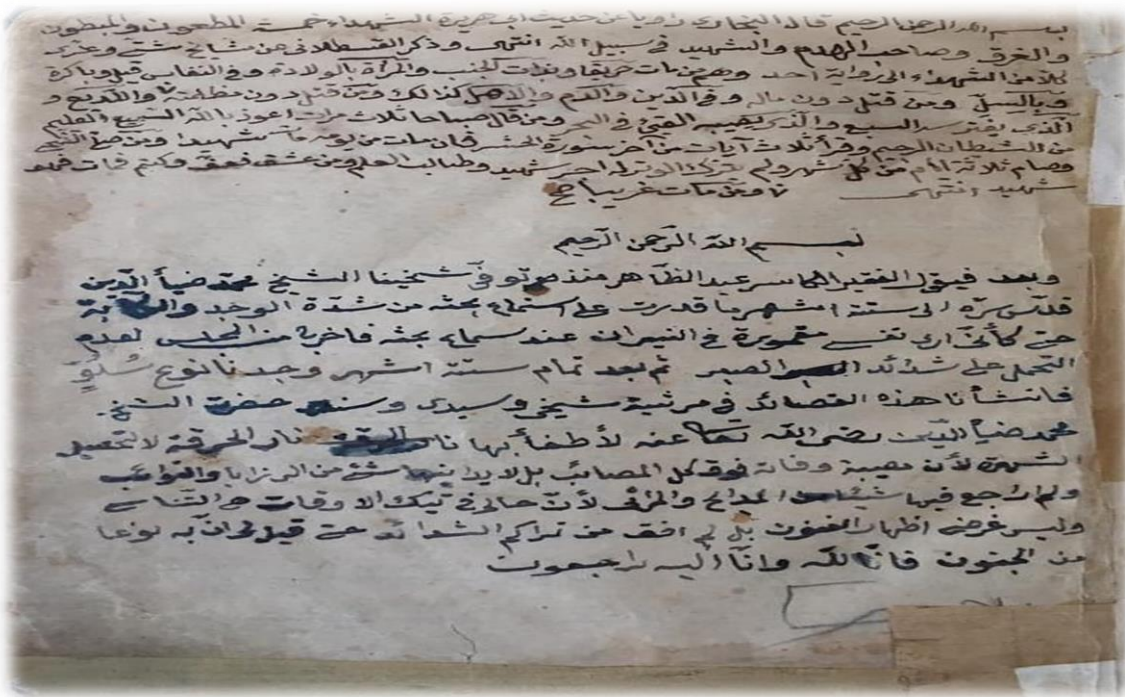 بسم الله الرحمن الرحيم قال البخاري راويا عن حديث ابي هريرة الشهداء خمسة المطعون والمبطون
والغرق وصاحب الهدم والشهيد في سبيل الله انتهى وذكر القسطلاني عن مشايخ شتى وعزى
كلا من الشهداء الى رواية احد وهم من مات حريقا وبذات الجنب والمرأة بالولادة وفي النفاس قيل وباكرة
وبالسل ومن قتل دون ماله وفي الدين والدم والاهل كذلك ومن قتل دون مظلمته واللديغ و
الذي يفترسه السبع والذي يصيبه القيئ في البحر ومن قال صباحا ثلاث مرات اعوذ بالله السميع العليم
من الشيطان الرجيم وقرأ ثلاث آيات من آخر سورة الحشر فان مات من يومه مات شهيدا ومن صلى الضحى
وصام ثلاثة ايام من كل شهر ولم يترك الوتر له اجر شهيد وطالب العلم ومن عشق فعف وكتم فمات فهو
شهيد انتهى ومن مات غريبا صح
بسم الله الرحمن الرحيم
وبعد فيقول الفقير عبد الظاهر منذ توفي شيخنا الشيخ محمد ضيأ الدين
قدس سره الى ستة اشهر ما قدرت على استماع بحثه من شدة الوجد
حتى كأني ارى نفسي مغمورة في النيران عند سماع بحثه فاخرج من المجلس لعدم
التحمل على شدائد الصبر ثم بعد تمام ستة اشهر وجدنا نوع سلو
فانشأنا هذه القصائد في مرثية شيخي وسيدي وسندي حضرت الشيخ
محمد ضيأ الدين رضى الله تعالى عنه لأطفأ بها نار الحرقة لا لتحصيل
الشهرة لأن مصيبة وفاته فوق كل المصائب بل لا يدانيها شئ من الرزايا والنوائب
ولم اراجع فيها شيئا من المدايح والمراثى لأن حالى في تيك الاوقات هو التناسى
وليس غرضى اظهار الفنون بل لم افق من تراكم الشدائد حتى قيل لى ان به نوعا
من الجنون فانا لله وانا اليه راجعون